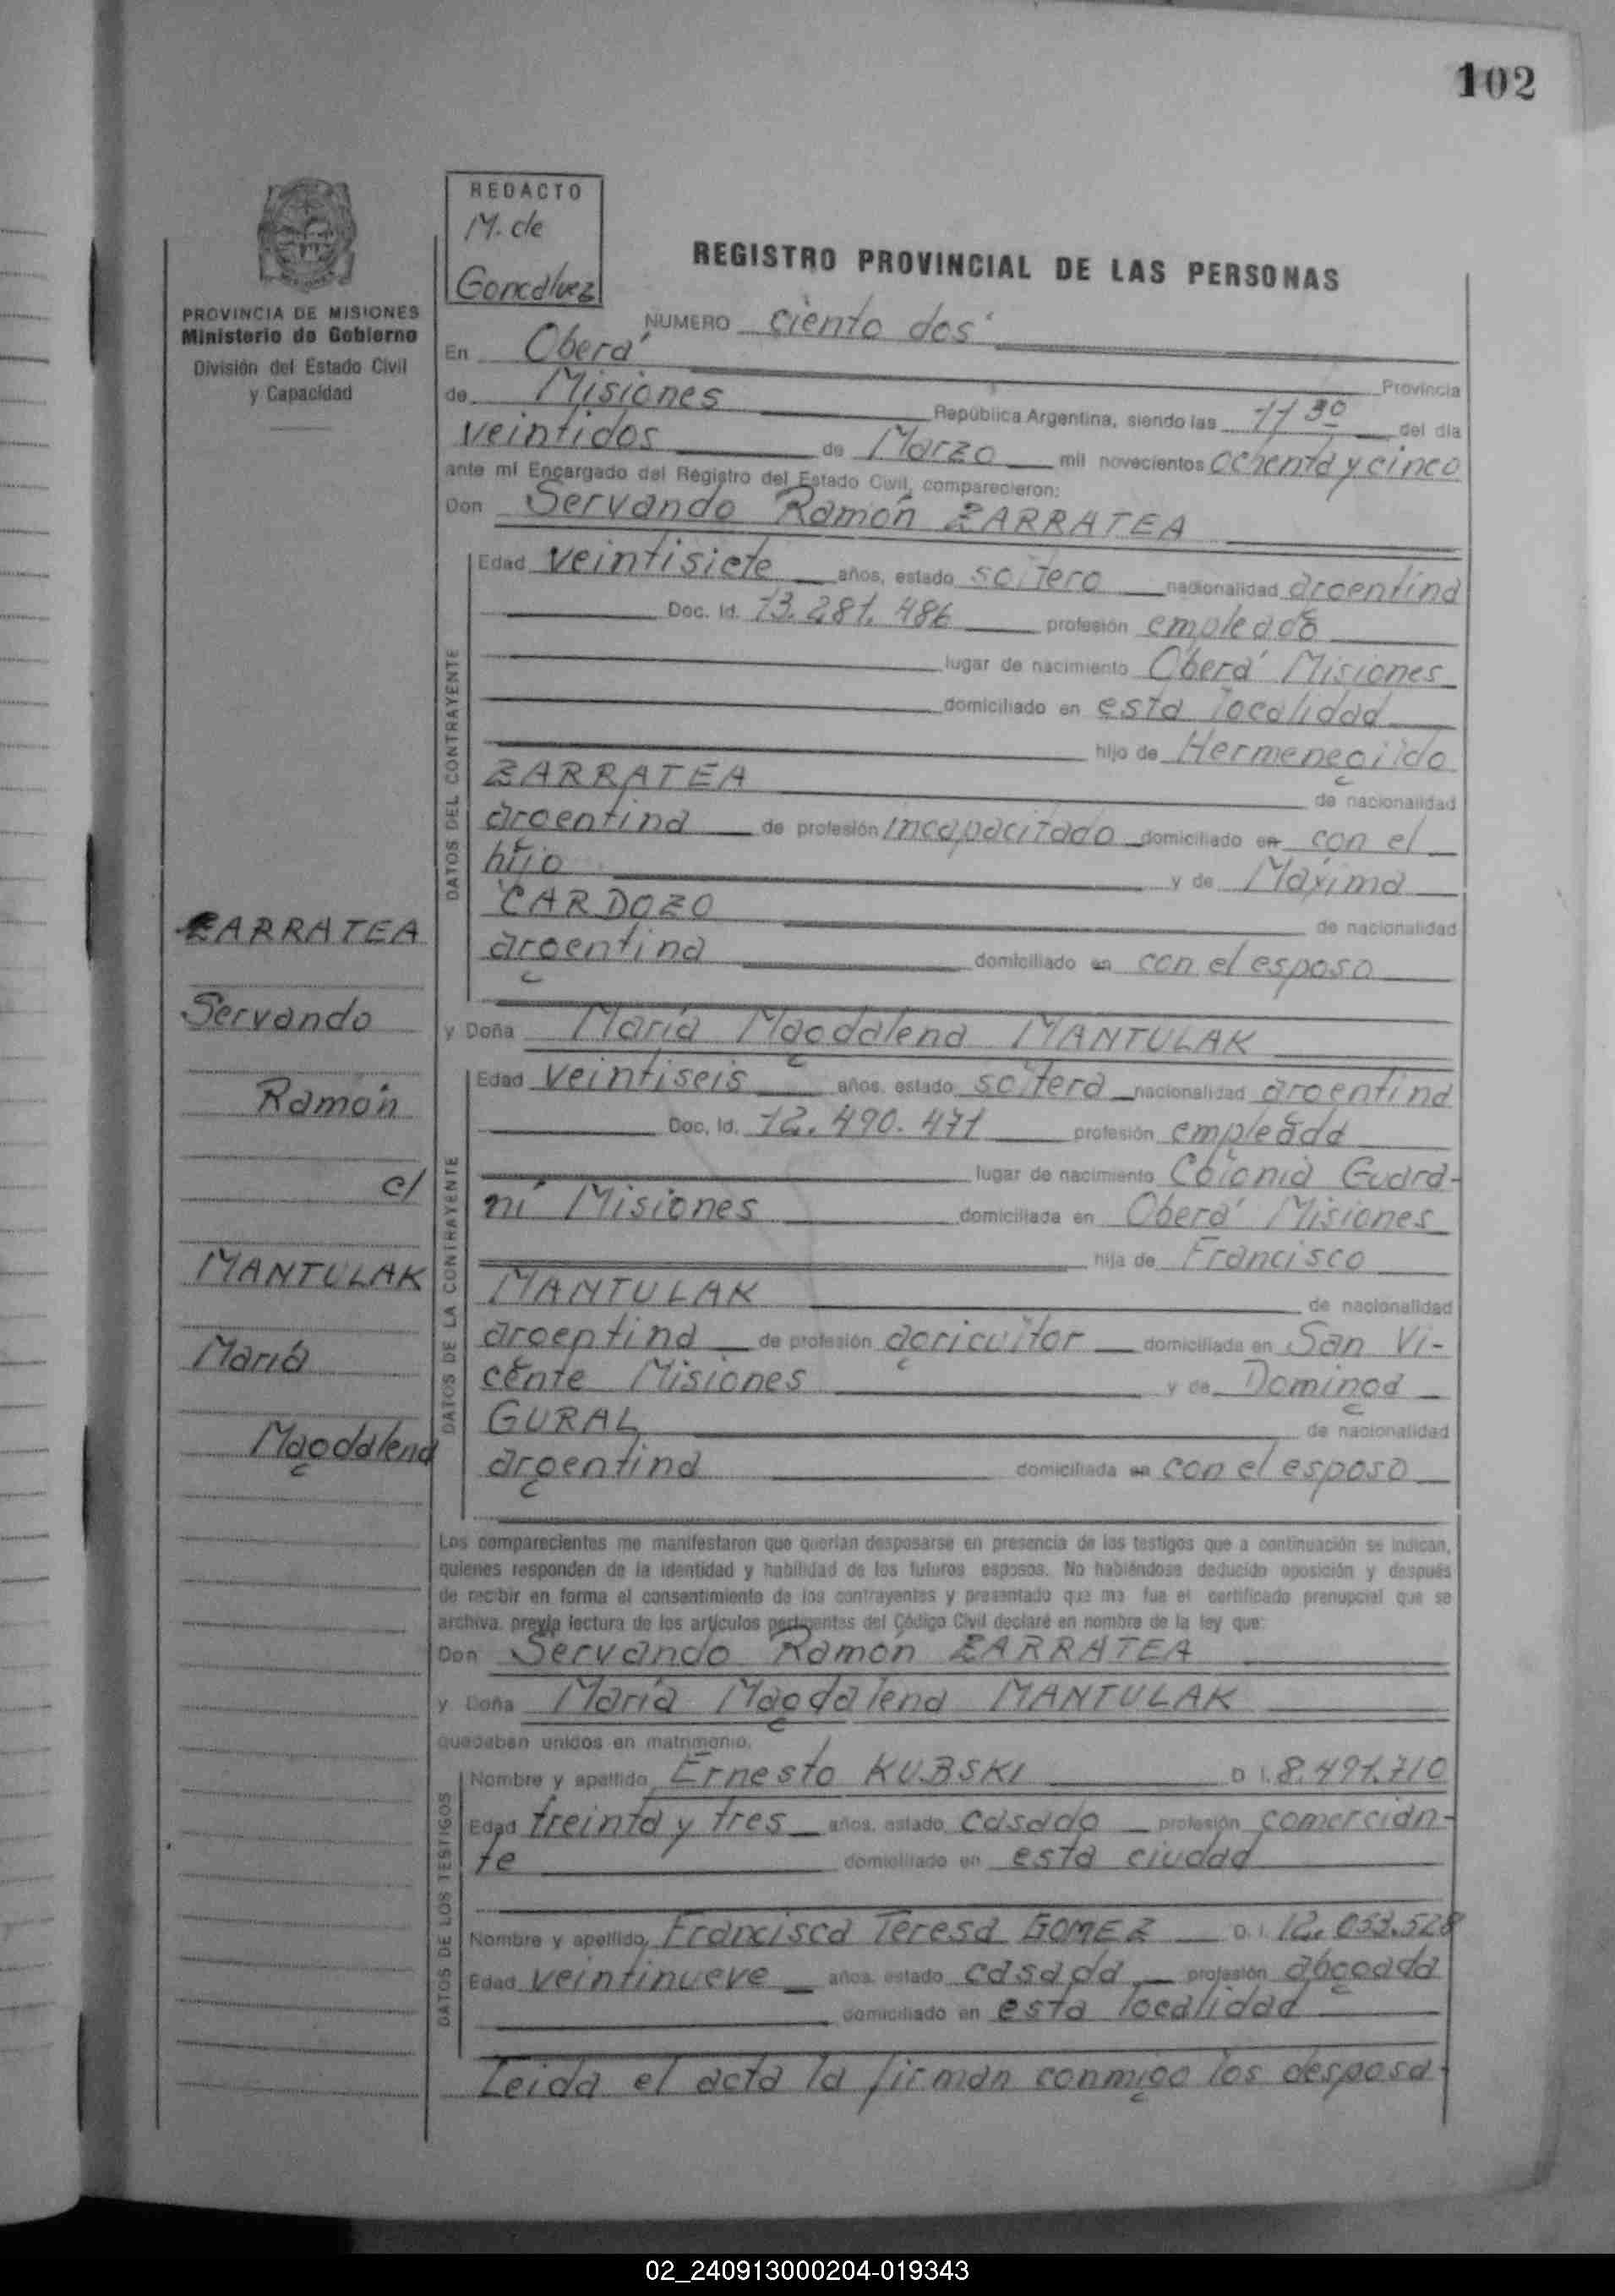 102
REDACTO
M. de
Goncalvez
REGISTRO PROVINCIAL DE LAS PERSONAS
PROVINCIA DE MISIONES
Ministerio de Gobierno
División del Estado Civil
y Capacidad
NUMERO ciento dos
En Oberá Provincia
de Misiones República Argentina, siendo las 11 30 del día
veintidos de Marzo mil novecientos ochenta y cinco
ante mí Encargado del Registro del Estado Civil, comparecieron:
Don Servando Ramón ZARRATEA
DATOS DEL CONTRAYENTE
Edad veintisiete años, estado soltero nacionalidad argentina
Doc. Id. 13.281.486 profesión empleado
lugar de nacimiento Oberá Misiones
domiciliado en esta localidad
hijo de Hermenegildo
ZARRATEA de nacionalidad
argentina de profesión incapacitado domiciliado en con el
hijo y de Máxima
CARDOZO de nacionalidad
argentina domiciliado en con el esposo
ZARRATEA
Servando
Ramón
c/
MANTULAK
María
Magdalena
y Doña María Magdalena MANTULAK
DATOS DE LA CONTRAYENTE
Edad veintiseis años, estado soltera nacionalidad argentina
Doc. Id. 12.490.471 profesión empleada
lugar de nacimiento Colonia Guara-
ní Misiones domiciliada en Oberá Misiones
hija de Francisco
MANTULAK de nacionalidad
argentina de profesión agricultor domiciliada en San Vi-
cente Misiones y de Dominga
GURAL de nacionalidad
argentina domiciliada en con el esposo
Los comparecientes me manifestaron que querían desposarse en presencia de los testigos que a continuación se indican,
quienes responden de la identidad y habilidad de los futuros esposos. No habiéndose deducido oposición y después
de recibir en forma el consentimiento de los contrayentes y presentado que me fue el certificado prenupcial que se
archiva, previa lectura de los artículos pertinentes del Código Civil declaré en nombre de la ley que:
Don Servando Ramón ZARRATEA
y Doña María Magdalena MANTULAK
quedaban unidos en matrimonio.
DATOS DE LOS TESTIGOS
Nombre y apellido Ernesto KUBSKI D.I. 8.491.710
Edad treinta y tres años, estado casado profesión comercian-
te domiciliado en esta ciudad
Nombre y apellido Francisca Teresa GOMEZ D.I. 12.053.528
Edad veintinueve años, estado casada profesión abogada
domiciliado en esta localidad
Leida el acta la firman conmigo los desposa-
02_240913000204-019343